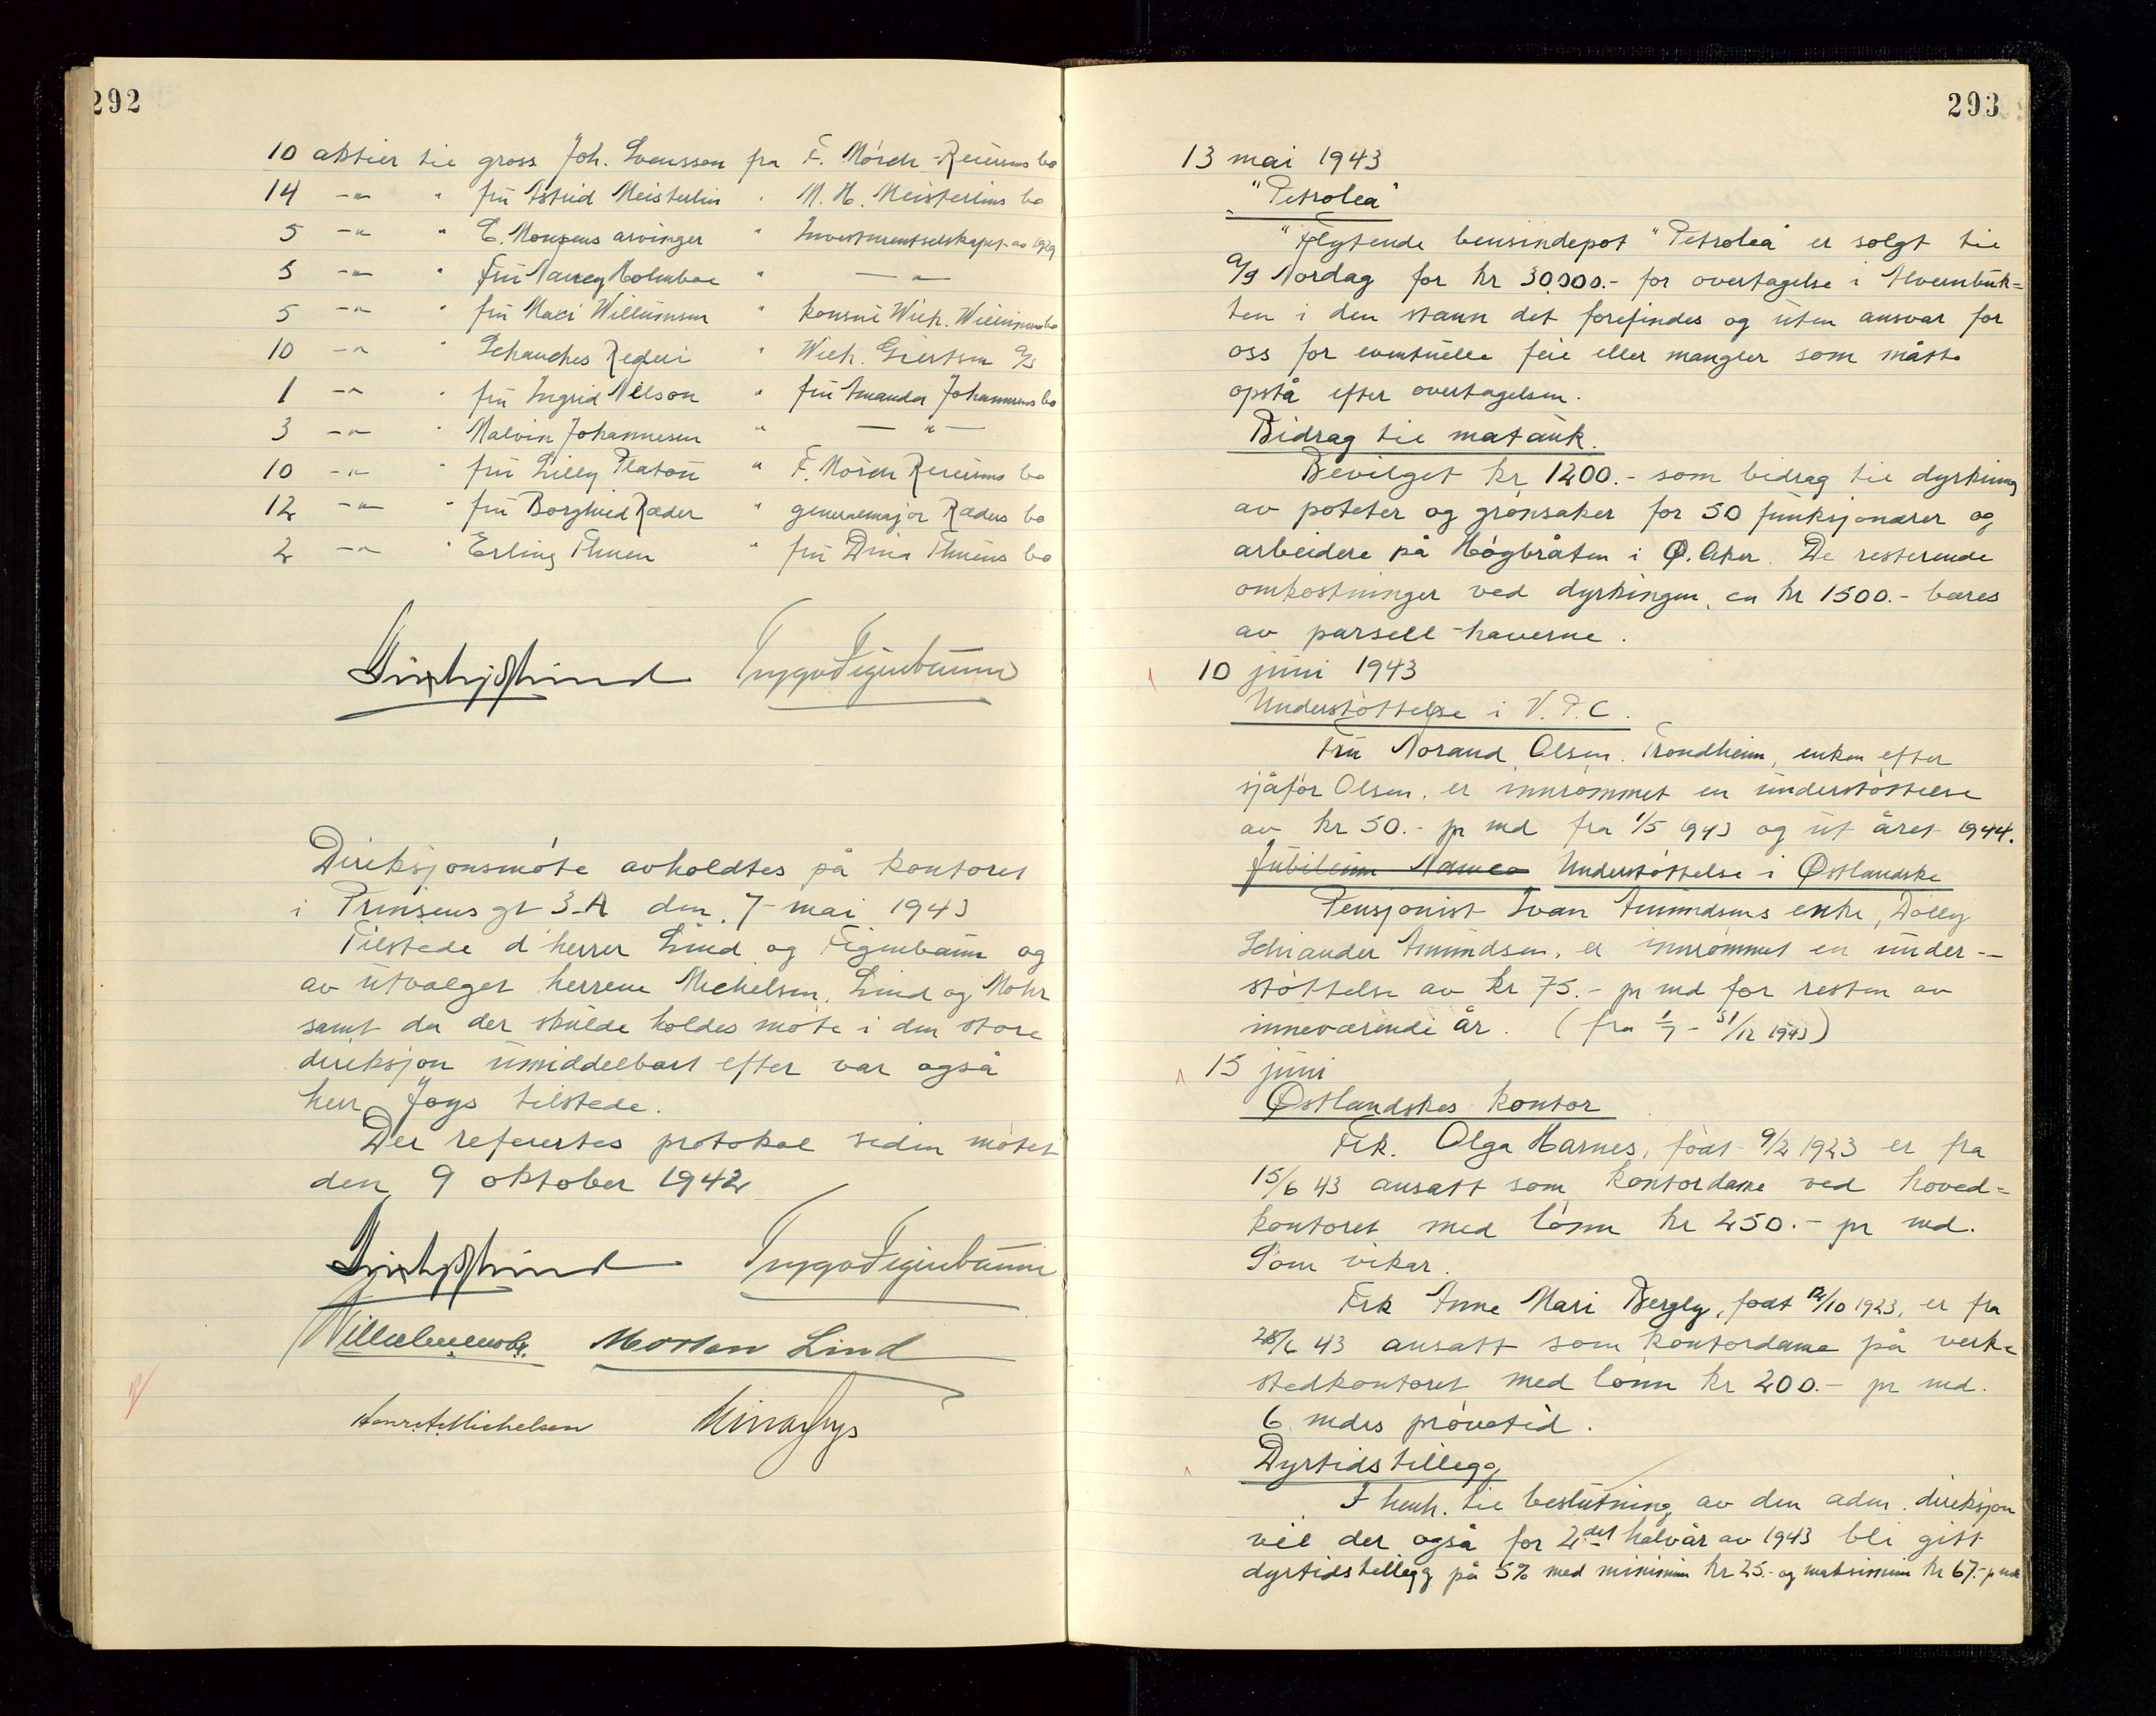 292
10 aktier til gross Joh. Svensson fra F. Mörch-Reiersens bo
14 -"- " fru Astrid Meisterlin " M. H. Meisterlins bo
5 -"- " C. Monsens arvinger " Investmentselskapet av 1929
5 -"- " Fru Nancy Holmboe " — " —
5 -"- " fru Mari Willumsen " konsul Wilh. Willumsens bo
10 -"- " Schanches Rederi " Wilh. Giertsen A/S
1 -"- " fru Ingrid Nilson " fru Amanda Johannesens bo
3 -"- " Malvin Johannesen " — " —
10 -"- " fru Lilly Platou " F. Mörch Reiersens bo
12 -"- " fru Borghild Ræder " generalmajor Ræders bo
2 -"- " Erling Thuen " fru Dina Thuens bo
Trygve Figenbaum
Direksjonsmöte avholdtes på kontoret
i Prinsens gt 3-A den 7 mai 1943
Tilstede d'herrer Lind og Figenbaum og
av utvalget herrene Michelsen, Lind og Mohr
samt da der skulde holdes möte i den store
direksjon umiddelbart efter var også
herr Joys tilstede.
Der refertes protokol siden mötet
den 9 oktober 1942
Trygve Figenbaum
Morten Lind
Henry A. Michelsen
293
13 mai 1943
"Petrolea"
"Flytende bensindepot "Petrolea" er solgt til
A/S Nordag for kr 30.000.- for overtagelse i Alvernbuk-
ten i den stann det forefindes og uten ansvar for
oss for eventuelle feil eller mangler som måtte
opstå efter overtagelsen.
Bidrag til matauk.
Bevilget kr 1200.- som bidrag til dyrkning
av poteter og grønsaker for 50 funksjonærer og
arbeidere på Högbråten i Ø. Aker. De resterende
omkostninger ved dyrkingen, ca kr 1500.- bæres
av parsell-haverne.
10 juni 1943
Understöttelse i V.P.C.
Fru Norand Olsen, Trondheim, enken efter
sjåför Olsen, er innrömmet en understöttelse
av kr 50.- pr md fra 1/5 1943 og ut året 1944.
Jubileum Namco Understöttelse i Østlandske
Pensjonist Ivan Amundsens enke, Dolly
Schiander Amundsen, er innrömmet en under-
stöttelse av kr 75.- pr md for resten av
inneværende år. (fra 1/7 - 31/12 1943)
15 juni
Østlandskes kontor
Frk. Olga Harnes, födt 9/2 1923 er fra
15/6 43 ansatt som kontordame ved hoved-
kontoret med lönn kr 250.- pr md.
Som vikar.
Frk Anne Mari Bergly, födt 12/10 1923, er fra
28/6 43 ansatt som kontordame på verk-
stedkontoret med lönn kr 200.- pr md.
6 mdrs prövetid.
Dyrtidstillegg
I henh. til beslutning av den adm. direksjon
vil der også for 2det halvår av 1943 bli gitt
dyrtidstillegg på 5% med minimum kr 25.- og maksimum kr 67.- p md